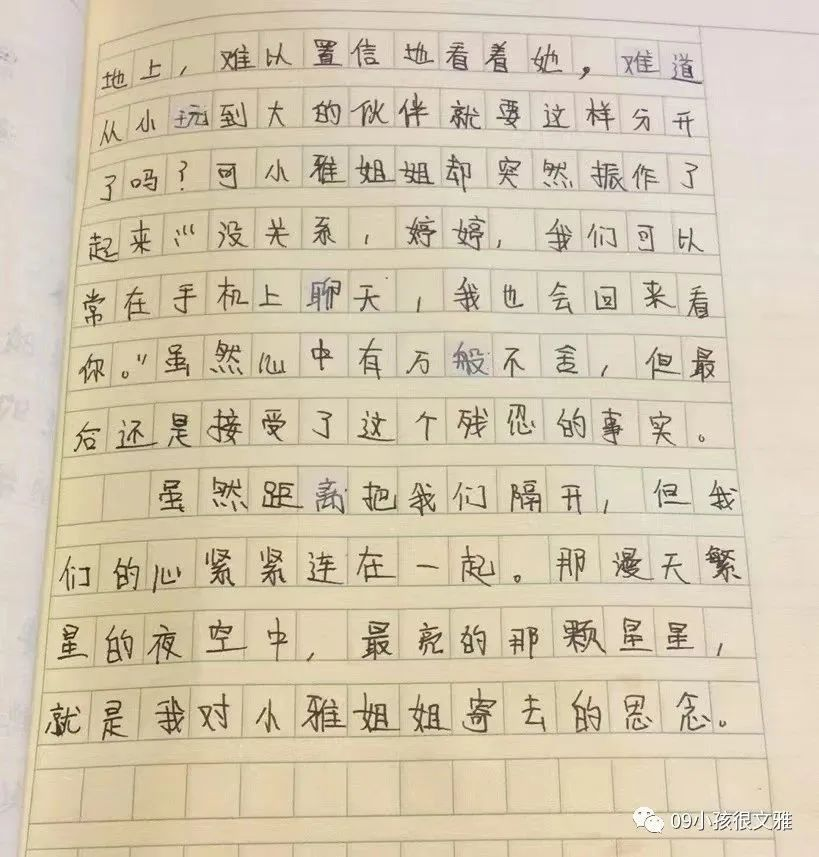 地上，难以置信地看着她，难道
从小玩到大的伙伴就要这样分开
了吗？可小雅姐姐却突然振作了
起来：“没关系，婷婷，我们可以
常在手机上聊天，我也会回来看
你。”虽然心中有万般不舍，但最
后还是接受了这个残忍的事实。
虽然距离把我们隔开，但我
们的心紧紧连在一起。那漫天繁
星的夜空中，最亮的那颗星星，
就是我对小雅姐姐寄去的思念。
09小孩很文雅